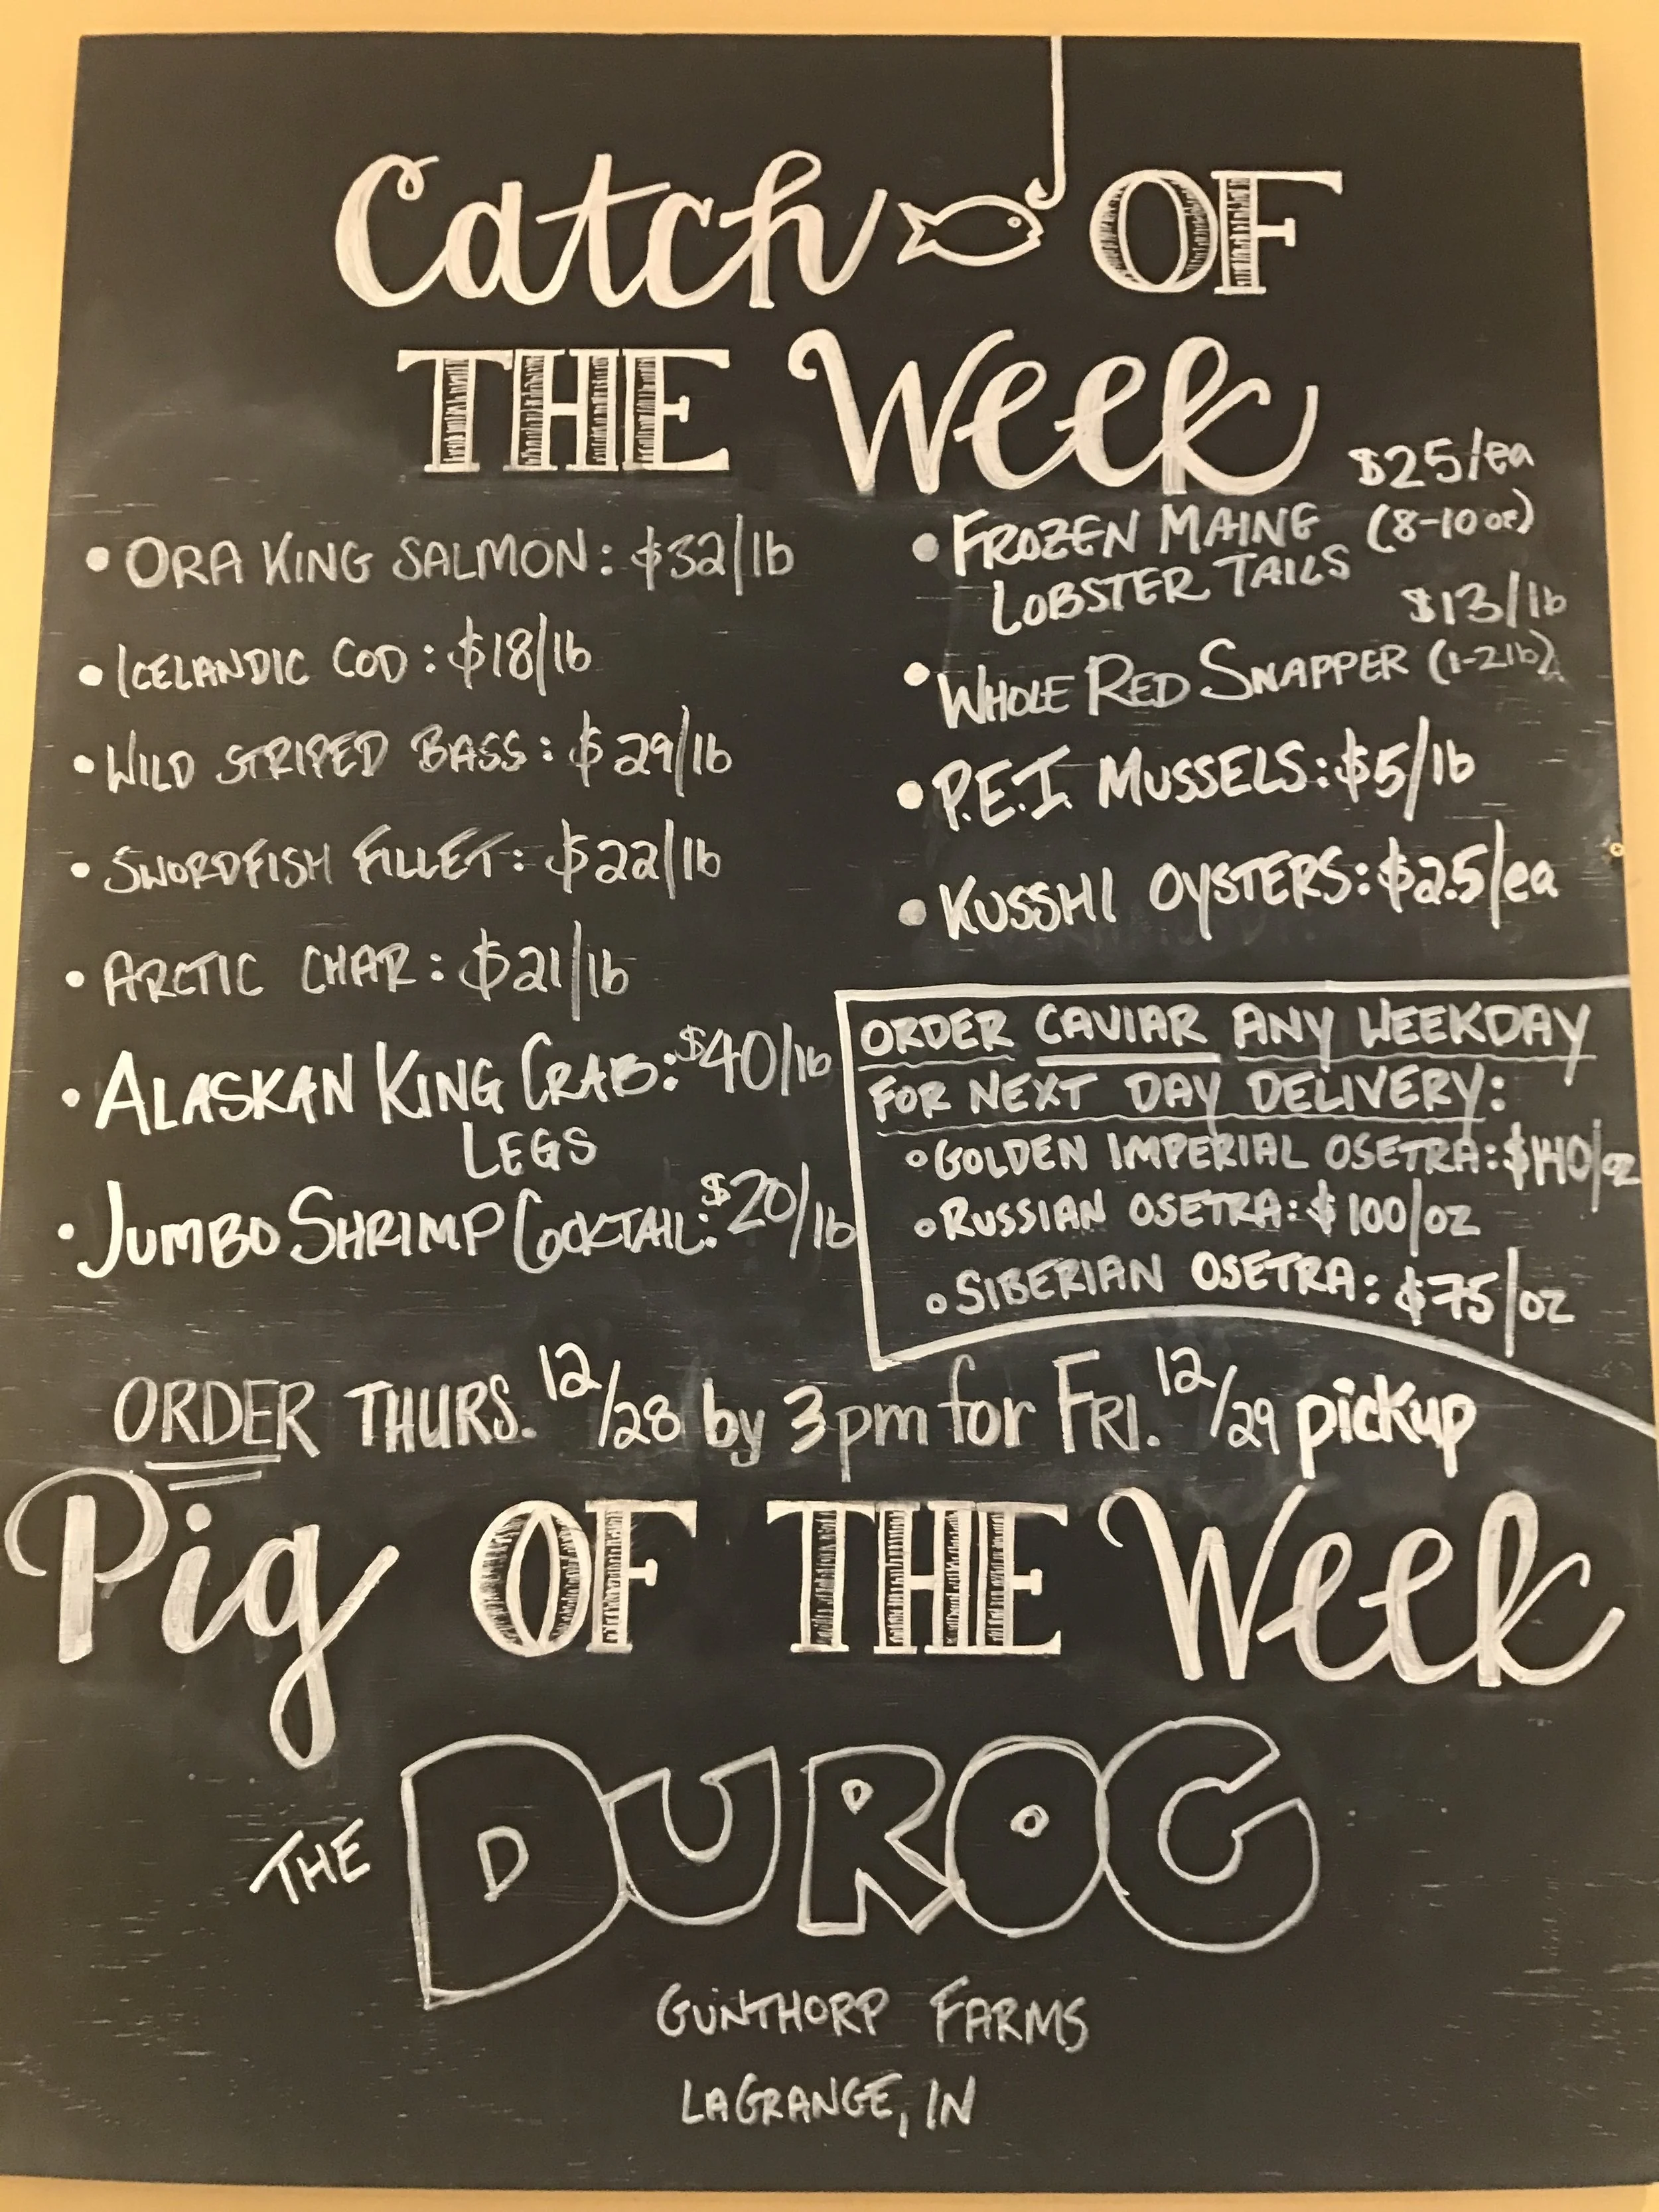 Catch OF
THE Week
• ORA KING SALMON: $32/lb
• ICELANDIC COD: $18/lb
• WILD STRIPED BASS: $29/lb
• SWORDFISH FILLET: $22/lb
• ARCTIC CHAR: $21/lb
• ALASKAN KING CRAB: $40/lb
LEGS
• JUMBO SHRIMP COCKTAIL: $20/lb
$25/ea
• FROZEN MAINE (8-10 oz)
LOBSTER TAILS
$13/lb
• WHOLE RED SNAPPER (1-2lb)
• P.E.I. MUSSELS: $5/lb
• KUSSHI OYSTERS: $2.5/ea
ORDER CAVIAR ANY WEEKDAY
FOR NEXT DAY DELIVERY:
◦ GOLDEN IMPERIAL OSETRA: $140/oz
◦ RUSSIAN OSETRA: $100/oz
◦ SIBERIAN OSETRA: $75/oz
ORDER THURS. 12/28 by 3pm for FRI. 12/29 pickup
Pig OF THE Week
THE DUROC
GUNTHORP FARMS
LAGRANGE, IN